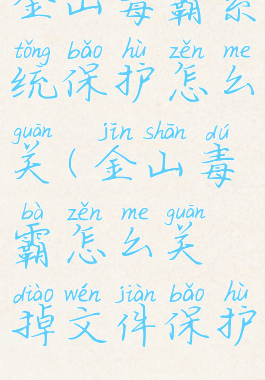 金山毒霸系
tǒng bǎo hù zěn me
统保护怎么
guān jīn shān dú
关(金山毒
bà zěn me guān
霸怎么关
diào wén jiàn bǎo hù
掉文件保护